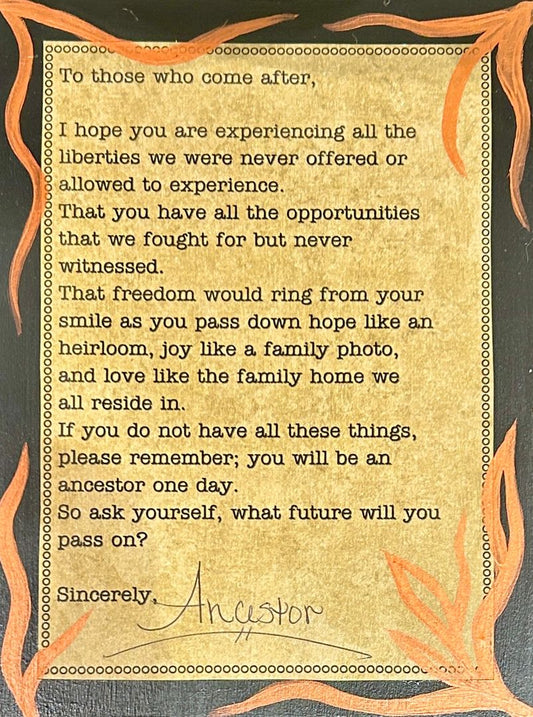 To those who come after,
I hope you are experiencing all the
liberties we were never offered or
allowed to experience.
That you have all the opportunities
that we fought for but never
witnessed.
That freedom would ring from your
smile as you pass down hope like an
heirloom, joy like a family photo,
and love like the family home we
all reside in.
If you do not have all these things,
please remember; you will be an
ancestor one day.
So ask yourself, what future will you
pass on?
Sincerely, Ancestor